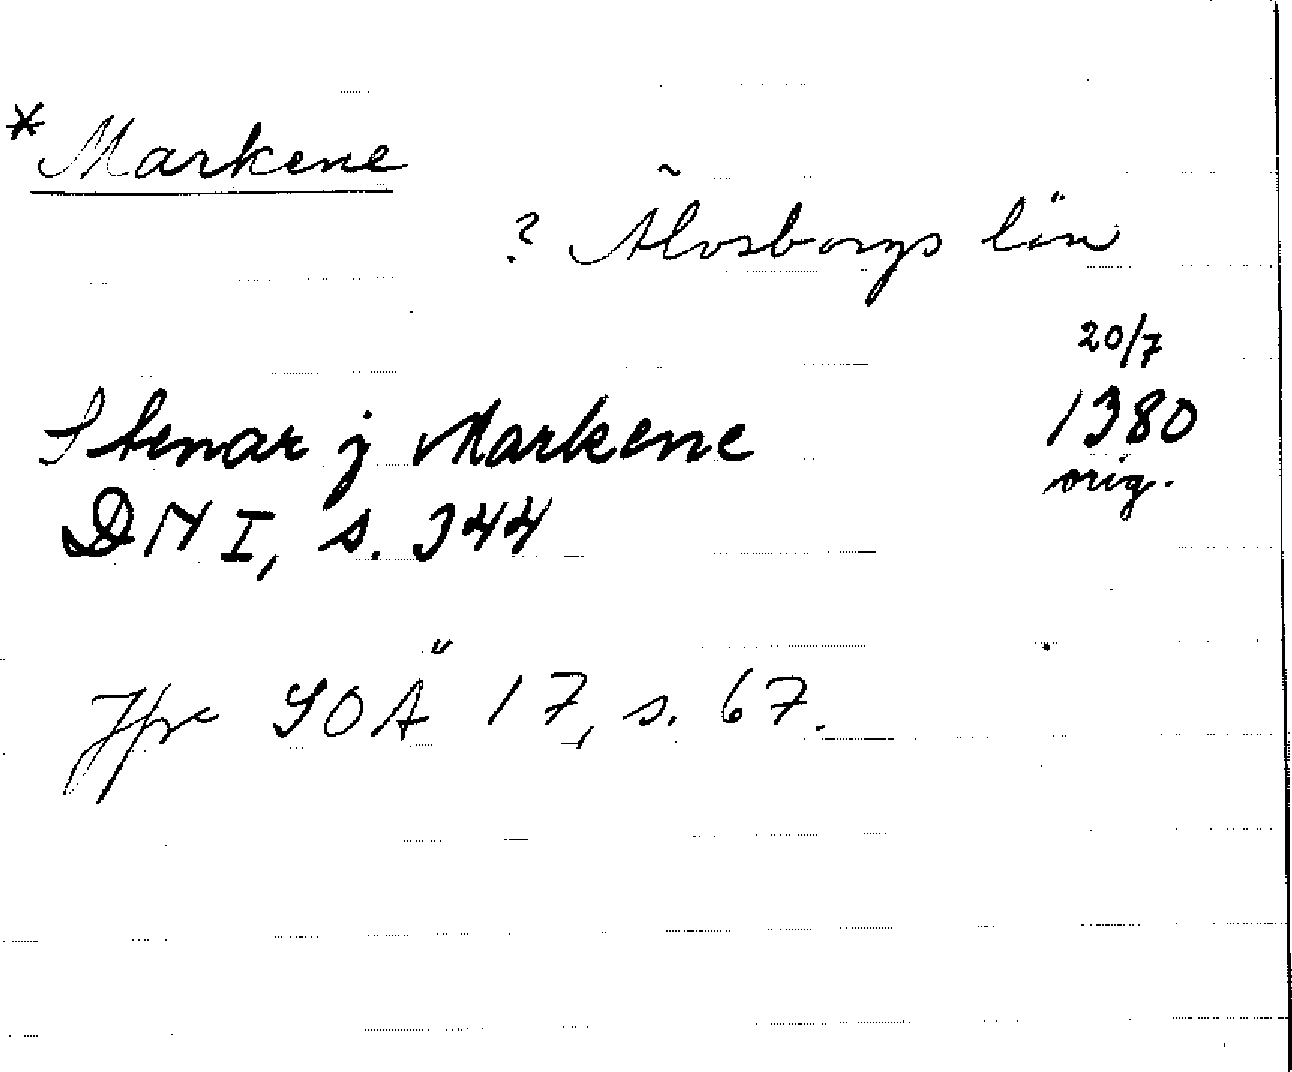 *Markene
? Älvsborgs län
20/7
Stenar j Markene 1380
orig.
DN I, s. 344
Jfr SOÄ 17, s. 67.